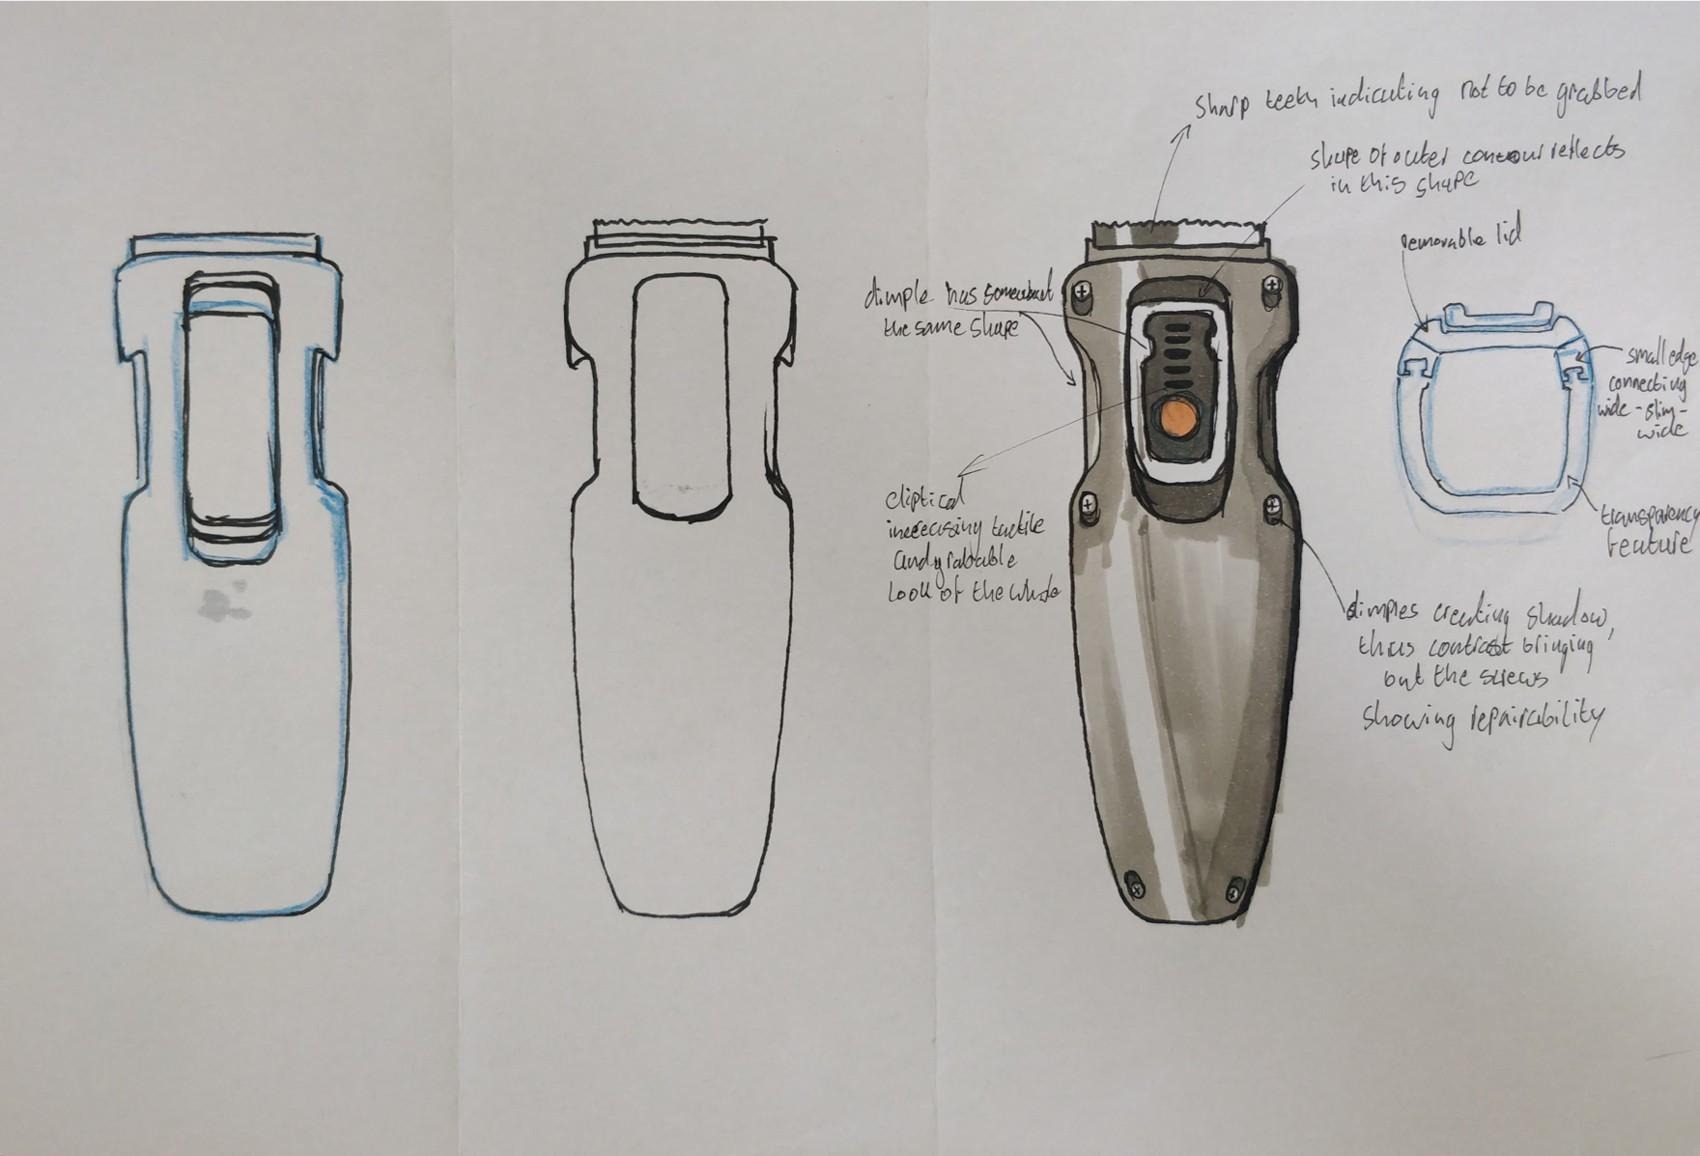 sharp teeth indicating not to be grabbed
shape of outer contour reflects
in this shape
removable lid
dimple has somewhat
the same shape
small edge
connecting
wide - slim -
wide
eliptical
increasing tactile
and grabable
look of the whole
transparency
feature
dimples creating shadow,
thus contrast bringing
out the screws
showing repairability